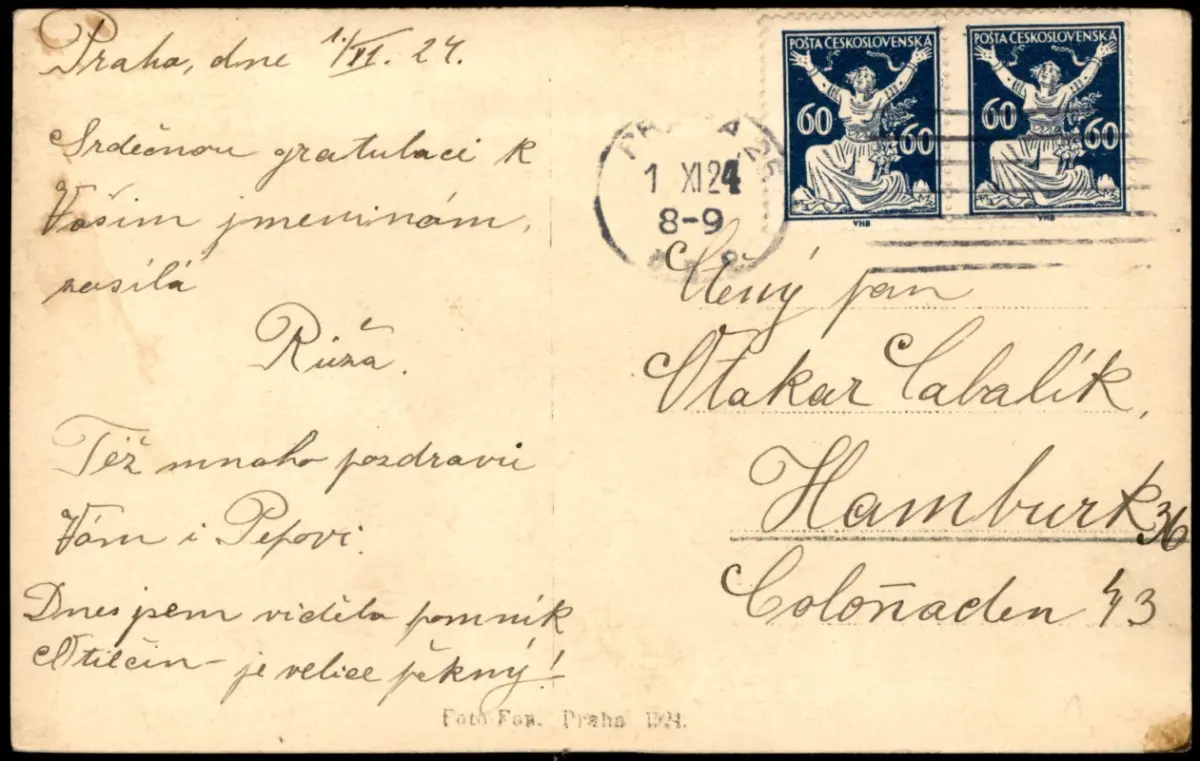 Praha, dne 1./XI. 24.
Srdečnou gratulaci k
Vašim jmeninám,
zasílá
Růža.
Též mnoho pozdravů
Vám i Pepovi.
Dnes jsem viděla pomník
Otilčin – je velice pěkný!
Foto Fon. Praha 1924.
POŠTA ČESKOSLOVENSKÁ
60 60
VHB
POŠTA ČESKOSLOVENSKÁ
60 60
VHB
1 XI 24
8-9
Ctěný pan
Otakar Cabalík,
Hamburk 36
Coloñaden 43